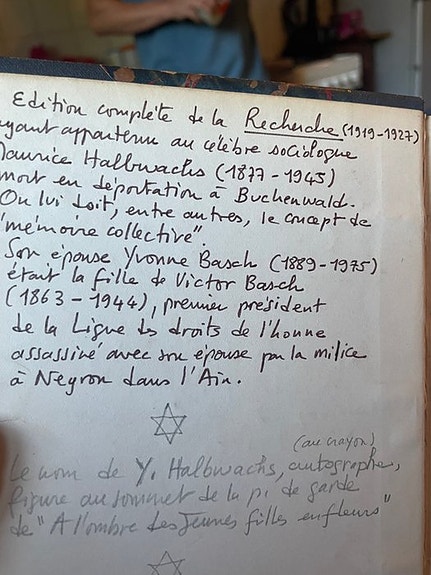 Edition complète de la Recherche (1919-1927)
ayant appartenu au célèbre sociologue
Maurice Halbwachs (1877-1945)
mort en déportation à Buchenwald.
On lui doit, entre autres, le concept de
"mémoire collective".
Son épouse Yvonne Basch (1889-1975)
étant la fille de Victor Basch
(1863-1944), premier président
de la Ligue des droits de l'homme
assassiné avec son épouse par la milice
à Neyron dans l'Ain.
(au crayon)
Le nom de Y. Halbwachs, autographe,
figure au sommet de la p. de garde
de "A l'ombre des Jeunes filles en fleurs"